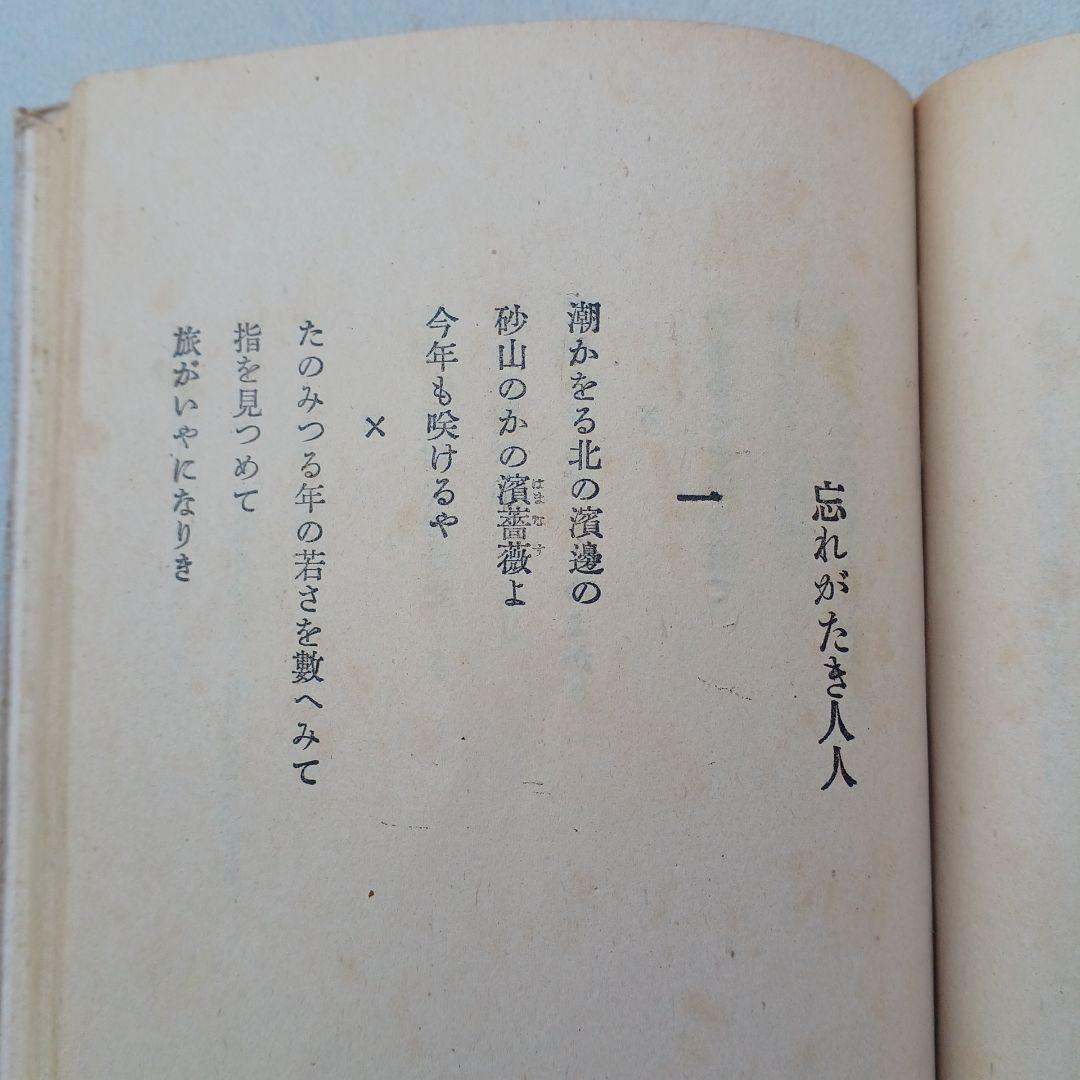 忘れがたき人人
一
潮かをる北の濱邊の
砂山のかの濱薔薇よ
はまなす
今年も咲けるや
×
たのみつる年の若さを數へみて
指を見つめて
旅がいやになりき